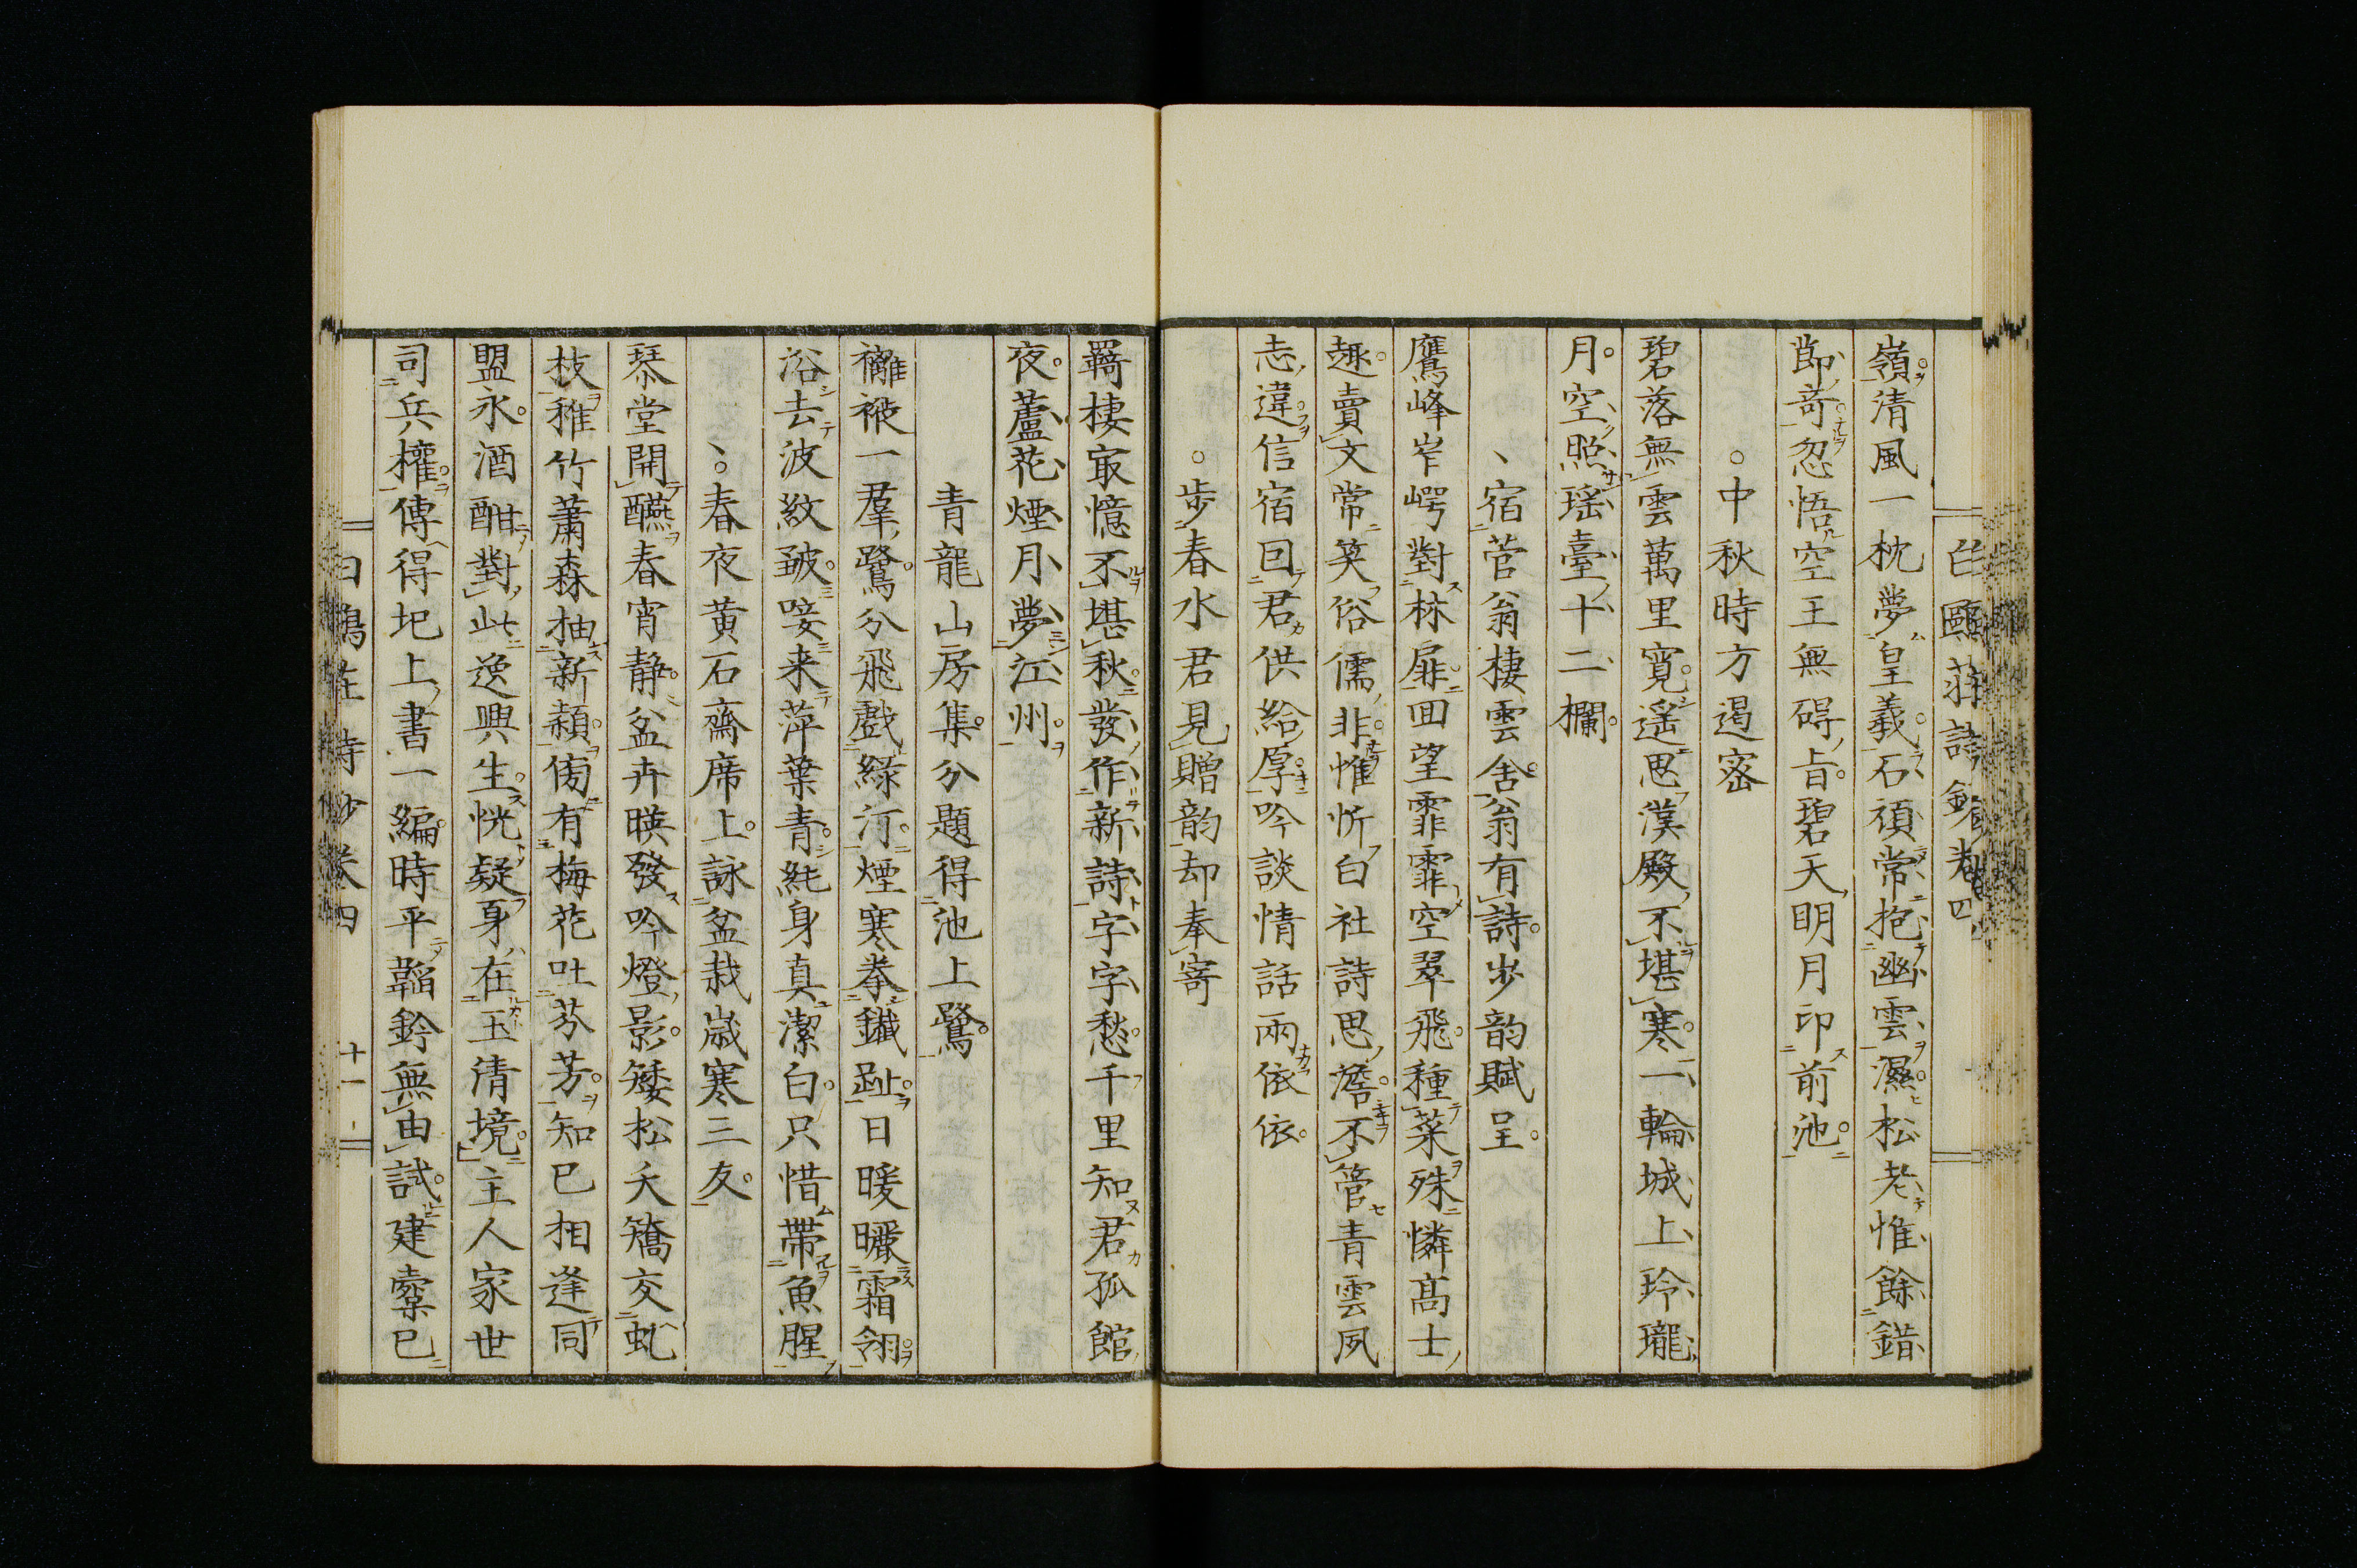 白鷗莊詩鈔卷四
嶺清風一枕夢皇羲石頑常抱幽雲濕松老惟餘錯
節奇忽悟空王無碍旨碧天明月印前池
中秋時方遏密
碧落無雲萬里寬遙思漢殿不堪寒一輪城上玲瓏
月空照瑤臺十二欄
宿菅翁棲雲舍翁有詩步韵賦呈
鷹峰岝崿對林扉回望霏霏空翠飛種菜殊憐高士
趣賣文常笑俗儒非惟忻白社詩思澹不管青雲夙
志違信宿回君供給厚吟談情話兩依依
步春水君見贈韵却奉寄
羇棲寂憶不堪秋發作新詩字字愁千里知君孤館
夜蘆花煙月夢江州
青龍山房集分題得池上鷺
襳褷一羣鷺分飛戲綠汀煙寒拳鐵趾日暖曬霜翎
浴去波紋皴唼来萍葉青純身真潔白只惜帶魚腥
春夜黄石齋席上詠盆栽歳寒三友
琴堂開醼春宵靜盆卉暎發吟燈影矮松夭矯交虬
枝稚竹蕭森抽新穎傍有梅花吐芬芳知己相逢同
盟永酒酣對此逸興生恍疑身在玉清境主人家世
司兵權傳得圯上書一編時平韜鈐無由試建櫜已
白鷗莊詩鈔卷四　十一